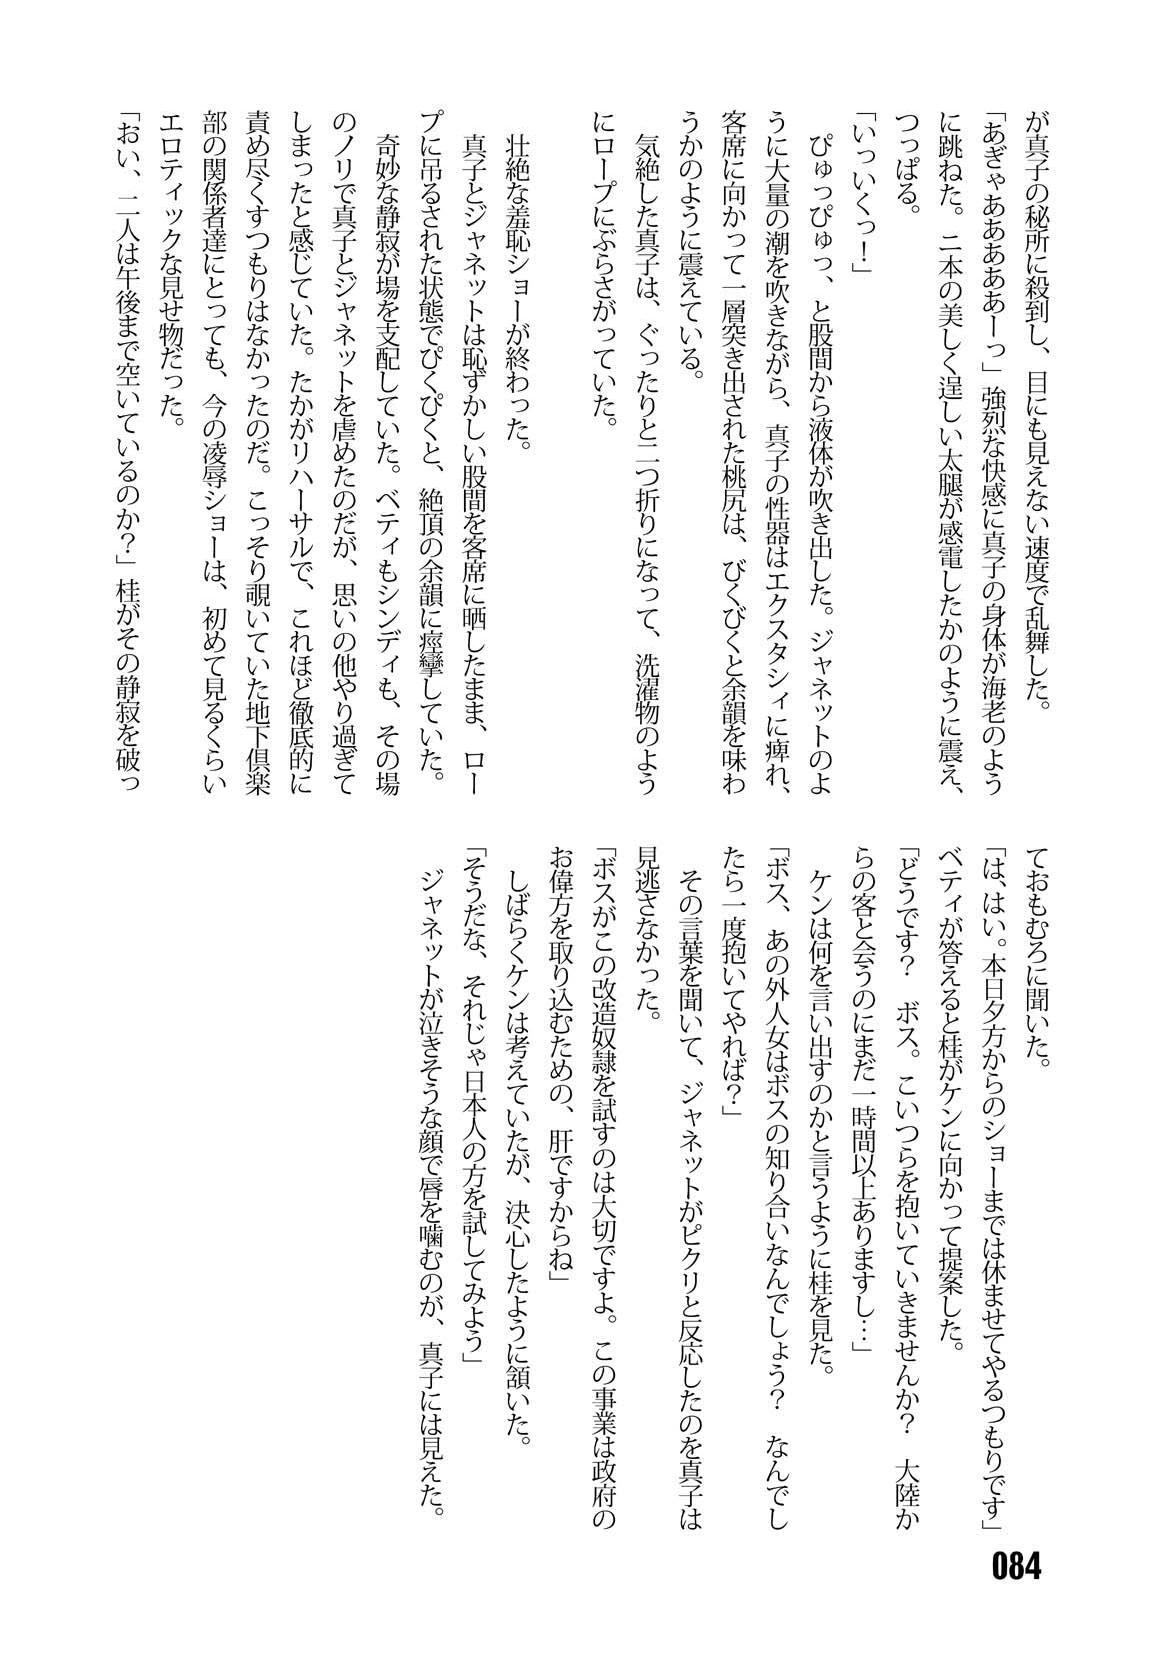 が真子の秘所に殺到し、目にも見えない速度で乱舞した。
「あぎゃああああーっ」強烈な快感に真子の身体が海老のよう
に跳ねた。二本の美しく逞しい太腿が感電したかのように震え、
つっぱる。
「いっいくっ！」
　ぴゅっぴゅっ、と股間から液体が吹き出した。ジャネットのよ
うに大量の潮を吹きながら、真子の性器はエクスタシィに痺れ、
客席に向かって一層突き出された桃尻は、びくびくと余韻を味わ
うかのように震えている。
　気絶した真子は、ぐったりと二つ折りになって、洗濯物のよう
にロープにぶらさがっていた。
　壮絶な羞恥ショーが終わった。
　真子とジャネットは恥ずかしい股間を客席に晒したまま、ロー
プに吊るされた状態でぴくぴくと、絶頂の余韻に痙攣していた。
　奇妙な静寂が場を支配していた。ベティもシンディも、その場
のノリで真子とジャネットを虐めたのだが、思いの他やり過ぎて
しまったと感じていた。たかがリハーサルで、これほど徹底的に
責め尽くすつもりはなかったのだ。こっそり覗いていた地下倶楽
部の関係者達にとっても、今の凌辱ショーは、初めて見るくらい
エロティックな見せ物だった。
「おい、二人は午後まで空いているのか？」桂がその静寂を破っ
ておもむろに聞いた。
「は、はい。本日夕方からのショーまでは休ませてやるつもりです」
ベティが答えると桂がケンに向かって提案した。
「どうです？　ボス。こいつらを抱いていきませんか？　大陸か
らの客と会うのにまだ一時間以上ありますし…」
　ケンは何を言い出すのかと言うように桂を見た。
「ボス、あの外人女はボスの知り合いなんでしょう？　なんでし
たら一度抱いてやれば？」
　その言葉を聞いて、ジャネットがピクリと反応したのを真子は
見逃さなかった。
「ボスがこの改造奴隷を試すのは大切ですよ。この事業は政府の
お偉方を取り込むための、肝ですからね」
　しばらくケンは考えていたが、決心したように頷いた。
「そうだな、それじゃ日本人の方を試してみよう」
　ジャネットが泣きそうな顔で唇を噛むのが、真子には見えた。
084